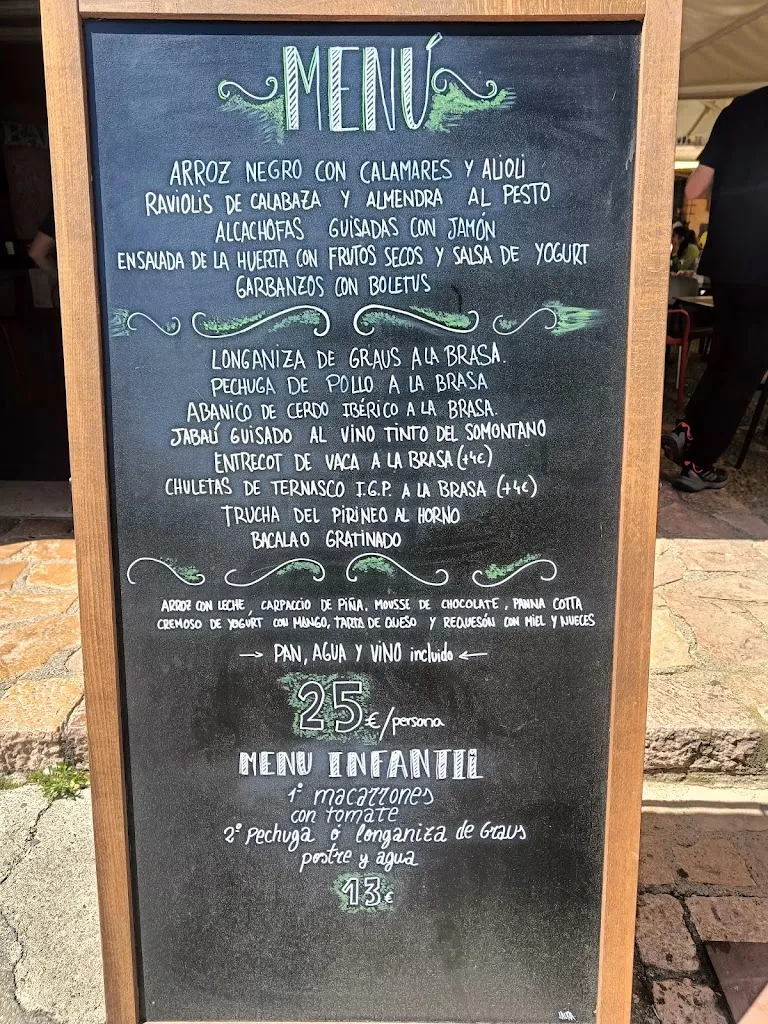 MENÚ
ARROZ NEGRO CON CALAMARES Y ALIOLI
RAVIOLIS DE CALABAZA Y ALMENDRA AL PESTO
ALCACHOFAS GUISADAS CON JAMÓN
ENSALADA DE LA HUERTA CON FRUTOS SECOS Y SALSA DE YOGURT
GARBANZOS CON BOLETUS
LONGANIZA DE GRAUS A LA BRASA.
PECHUGA DE POLLO A LA BRASA
ABANICO DE CERDO IBÉRICO A LA BRASA.
JABALÍ GUISADO AL VINO TINTO DEL SOMONTANO
ENTRECOT DE VACA A LA BRASA (+4€)
CHULETAS DE TERNASCO I.G.P. A LA BRASA (+4€)
TRUCHA DEL PIRINEO AL HORNO
BACALAO GRATINADO
ARROZ CON LECHE, CARPACCIO DE PIÑA, MOUSSE DE CHOCOLATE, PANNA COTTA
CREMOSO DE YOGURT CON MANGO, TARTA DE QUESO Y REQUESÓN CON MIEL Y NUECES
→ PAN, AGUA Y VINO incluido ←
25€/persona
MENU INFANTIL
1º macarrones
con tomate
2º Pechuga ó longaniza de Graus
postre y agua
13€